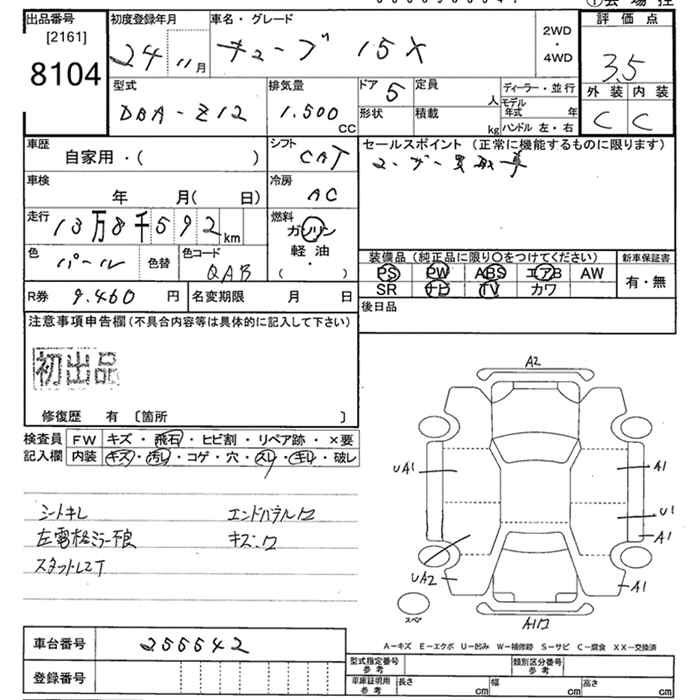 ①会場控
出品番号
[2161]
8104
初度登録年月
24 11月
車名・グレード
キューブ 15X
2WD
・
4WD
評価点
3.5
外装 内装
C C
型式
DBA-Z12
排気量
1.500
CC
ドア 5
定員
人
形状
積載
kg
ディーラー・並行
モデル年式 年
ハンドル 左・右
車歴
自家用・( )
シフト
CAT
セールスポイント (正常に機能するものに限ります)
ユーザー買取車
車検
年 月( 日)
冷房
AC
走行
13万8千592
km
燃料
ガソリン
軽油
( ・ )
色
パール
色替
色コード
QAB
装備品(純正品に限り○をつけてください)
PS PW ABS エアB AW
SR ナビ TV カワ
新車保証書
有・無
R券 9.460 円
名変期限 月 日
後日品
注意事項申告欄(不具合内容等は具体的に記入して下さい)
初出品
修復歴 有 〔箇所 〕
検査員
記入欄
FW キズ・飛石・ヒビ割・リペア跡・×要
内装 キズ・汚レ・コゲ・穴・スレ・キレ・破レ
シートキレ
エンドパネル口
左電格ミラー不良
キズ.ワ
スタットレスT
A2
UA1
A1
U1
A1
UA2
A1
スペア
車台番号 255542
登録番号
A-キズ E-エクボ U-凹み W-補修跡 S-サビ C-腐食 XX-交換済
型式指定番号
参考
類別区分番号
参考
車庫証明用
参考
長さ cm
幅 cm
高さ cm